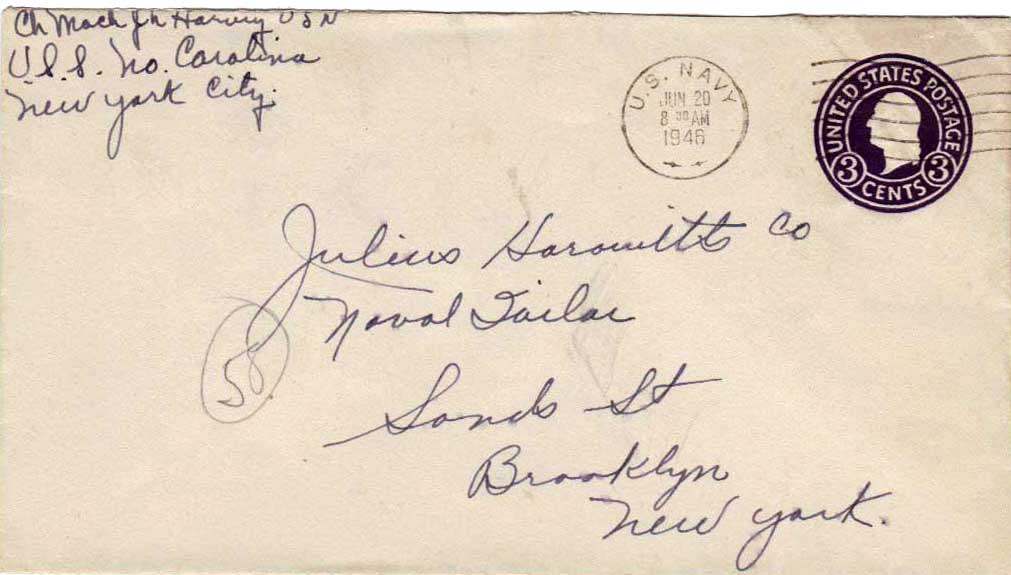 Ch Mach J h Harvey USN
U.S.S. No. Carolina
New York City.
U.S. NAVY
JUN 20
8 30 AM
1946
UNITED STATES POSTAGE
3 CENTS 3
Julius Horowitts Co
Naval Tailor
58
Sands St
Brooklyn
New York.